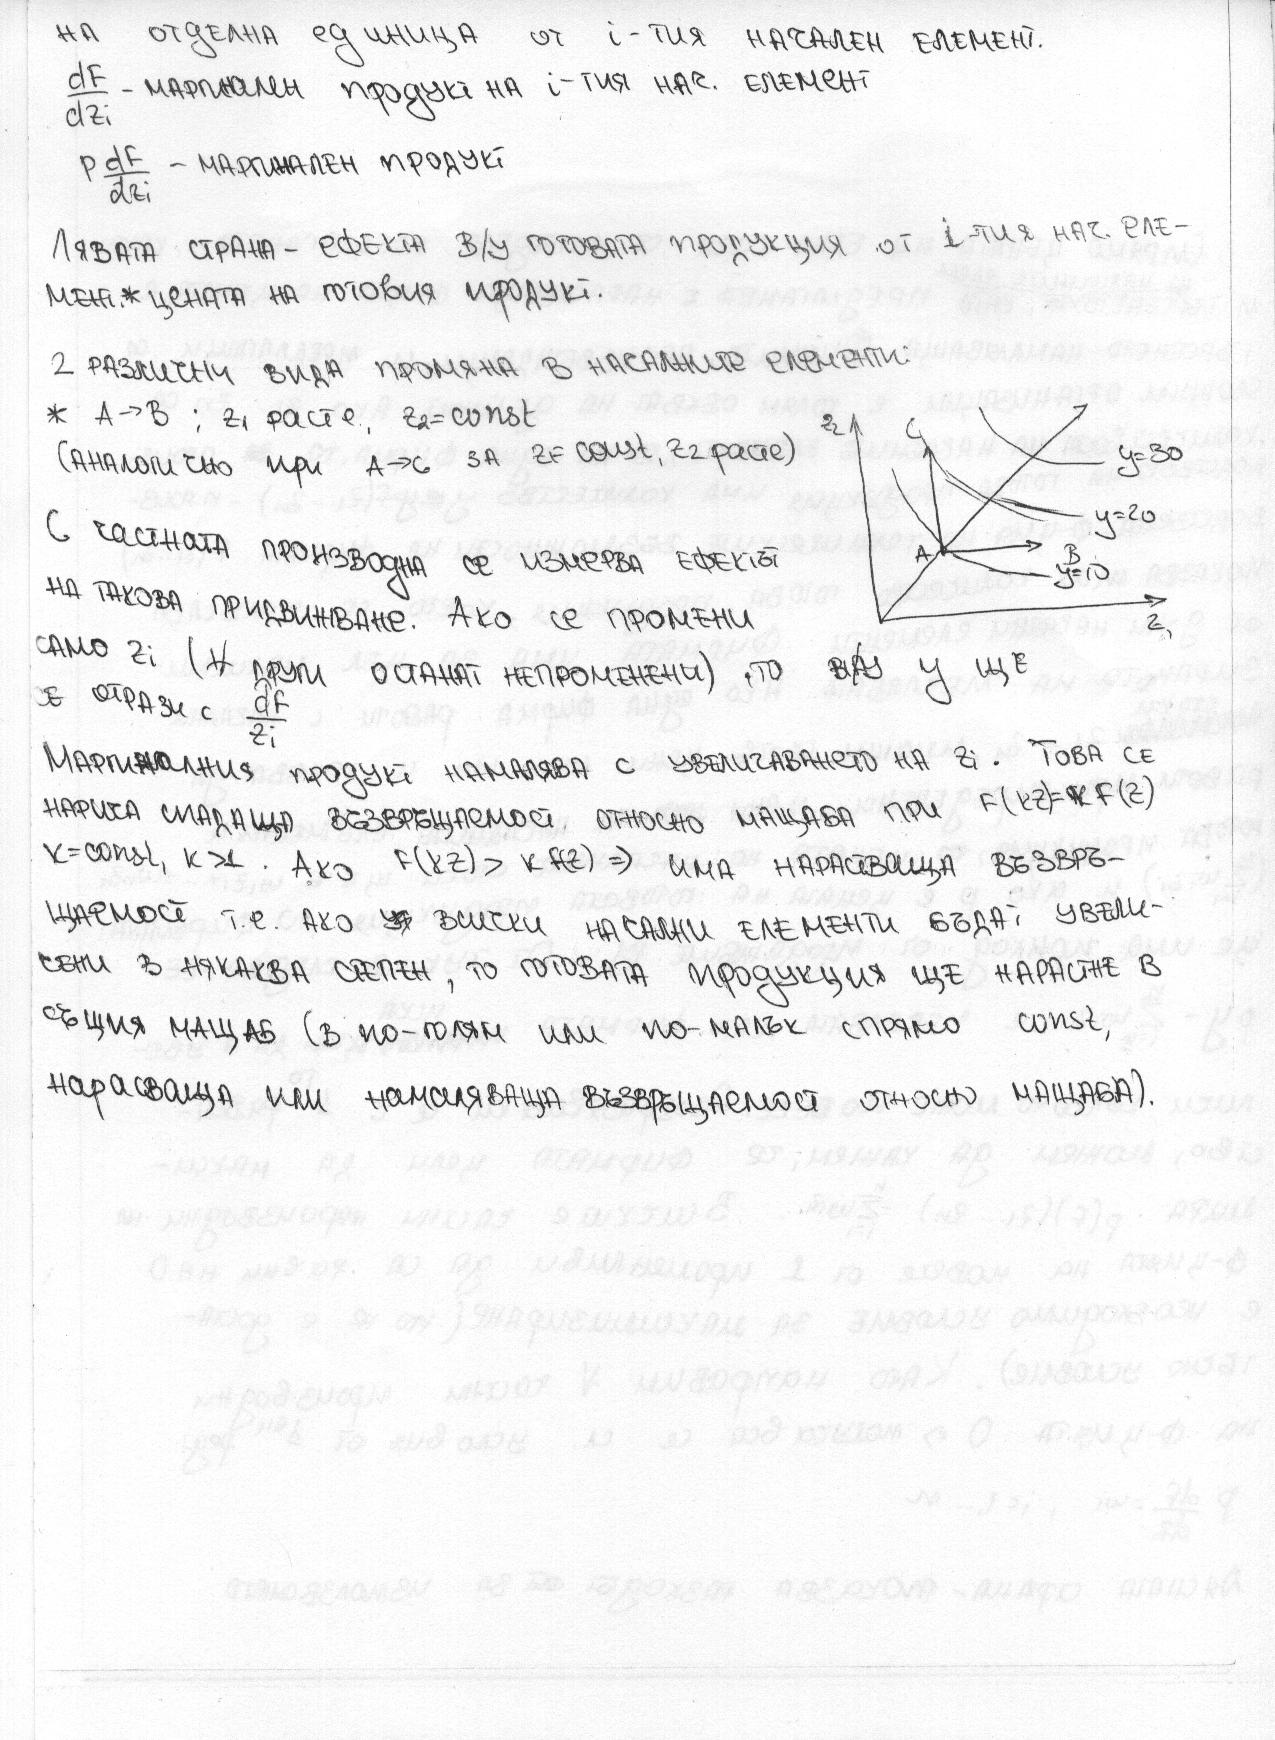 на отделна единица от i-тия начален елемент.
dF/dzi - маргинален продукт на i-тия нач. елемент
p dF/dzi - маргинален продукт
Лявата страна - ефекта в/у готовата продукция от i-тия нач. еле-
мент.* цената на готовия продукт.
2 различни вида промяна в началните елементи:
* A→B ; z1 расте, z2=const
(аналогично при A→C за z1=const, z2 расте)
z2
C
y=30
y=20
A
B
y=10
z1
С частната производна се измерва ефектът
на такова придвижване. Ако се промени
само zi (∀ други останат непроменени), то в/у y ще
се отрази с dF/zi
Маргиналния продукт намалява с увеличаването на zi. Това се
нарича спадаща възвръщаемост относно мащаба при F(kz)=kF(z)
k=const, k>1. Ако F(kz)>kf(z) => има нарастваща възвръ-
щаемост т.е. ако всички начални елементи бъдат увели-
чени в някаква степен, то готовата продукция ще нарастне в
същия мащаб (в по-голям или по-малък спрямо const,
нарасваща или намаляваща възвръщаемост относно мащаба).